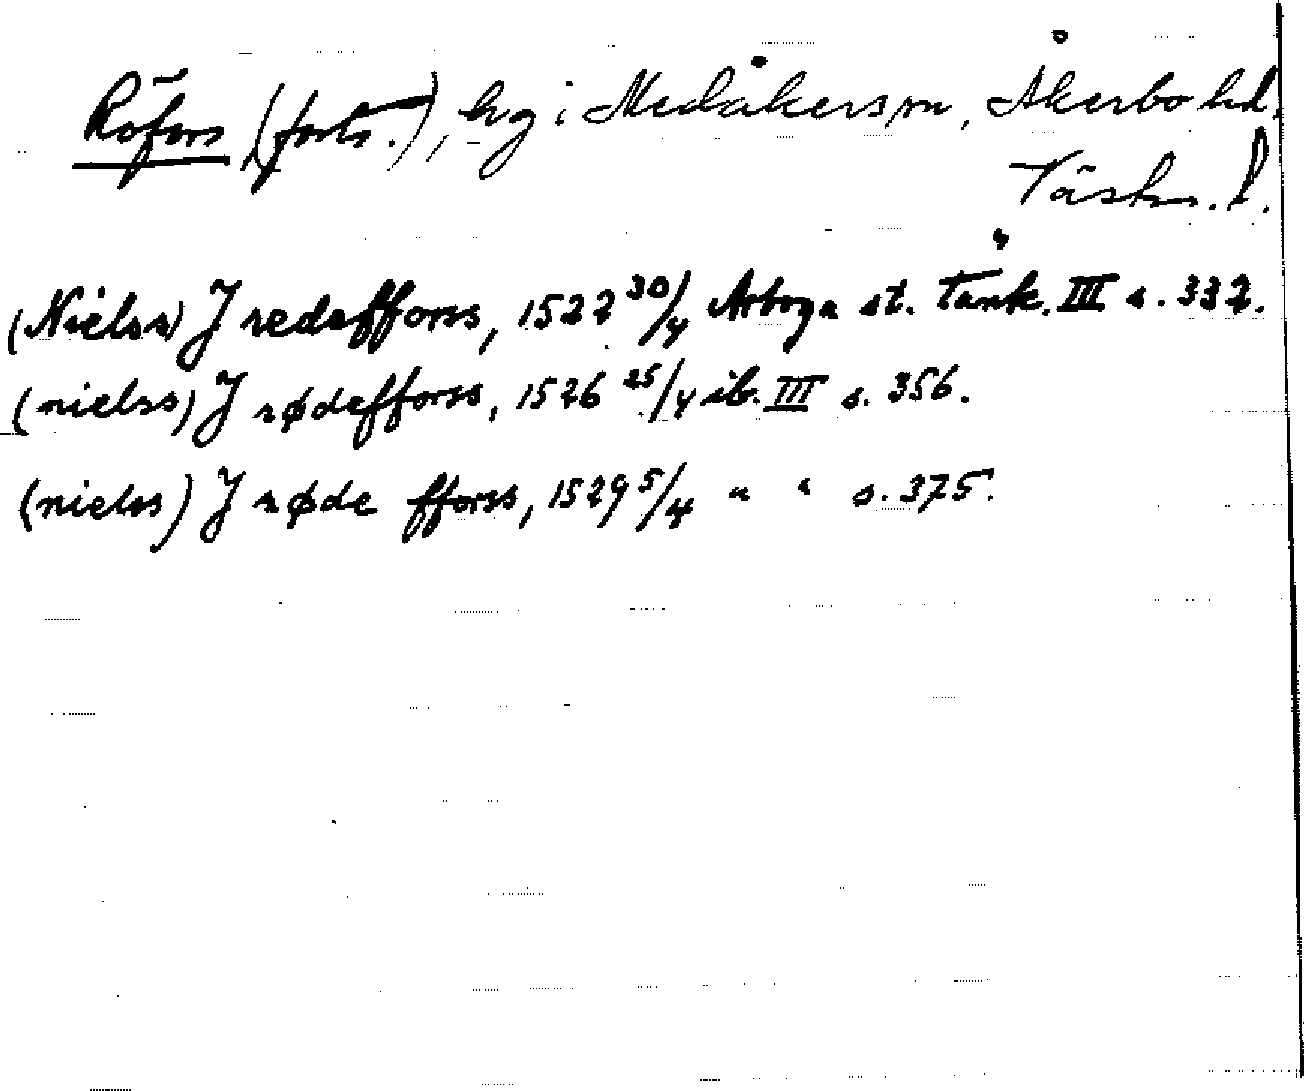 Röfors (forts.), by i Medåkers sn, Åkerbo hd,
Västm. l.
(Nielss) J redeffors, 1522 30/4 Arboga st. tänk. III s. 332.
(nielss) J rødefforss, 1526 25/4 ib. III s. 356.
(nielss) J røde fforss, 1529 5/4 " " s. 375.